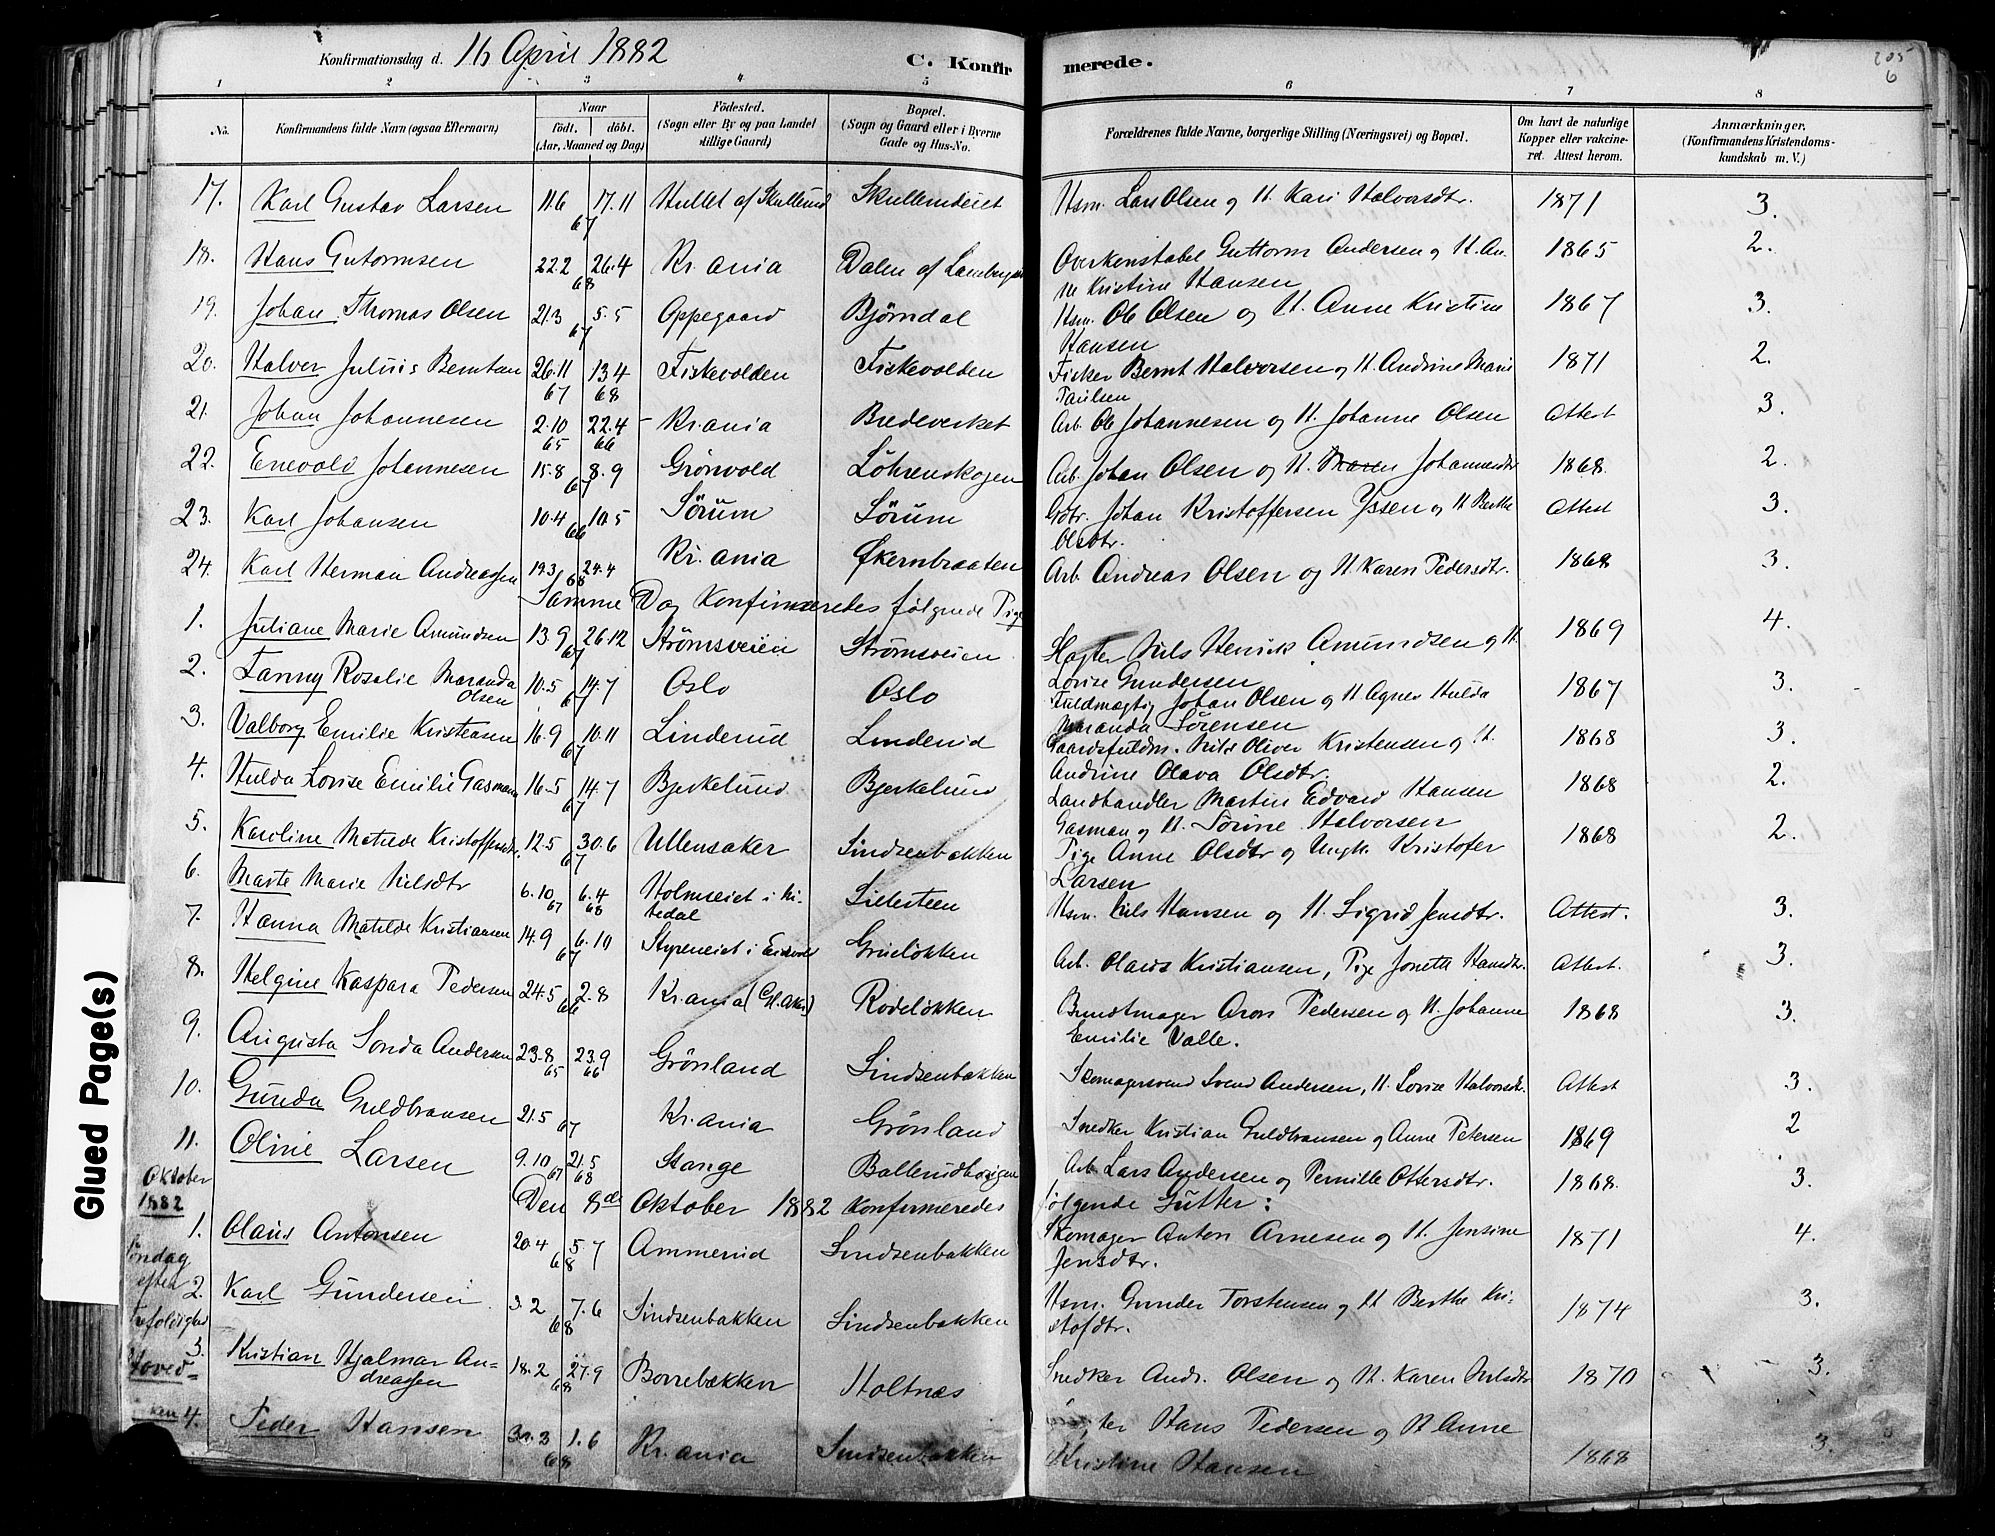 Konfirmationsdag d. 16 April 1882 C. Konfirmerede. 205
6
1 2 3 4 5 6 7 8
No. Konfirmandens fulde Navn (ogsaa Efternavn) Naar födt. döbt. (Aar, Maaned og Dag) Födested. (Sogn eller By og paa Landet tillige Gaard) Bopæl. (Sogn og Gaard eller i Byerne Gade og Hus-No. Forældrenes fulde Navne, borgerlige Stilling (Næringsvei) og Bopæl. Om havt de naturlige Kopper eller vakcineret. Attest herom. Anmærkninger. (Konfirmandens Kristendomskundskab m. V.)
17. Karl Gustav Larsen 11.6 17.11 67 Hullet af Skullerud Skullerudeiet Hsm. Lars Olsen og H. Kari Halvorsdtr. 1871 3.
18. Hans Gutormsen 22.2 26.4 68 Kr.ania Dalen af Lamberg Overkonstabel Guttorm Andersen og H. Anne Kristine Hansen 1865 2.
19. Johan Thomas Olsen 21.3 5.5 67 Oppegaard Björndal Hsm. Ole Olsen og H. Anne Kristine Hansen 1867 3.
20. Halvor Julius Berntsen 26.11 67 13.4 68 Fiskevolden Fiskevolden Fisker Bernt Halvorsen og H. Andrine Marie Paulsen 1871 2.
21. Johan Johannesen 2.10 65 22.4 66 Kr.ania Bredeverket Arb. Ole Johannesen og H. Johanne Olsen Attest 3.
22. Enevold Johannesen 15.8 8.9 67 Grönvold Löhrenskogen Arb. Johan Olsen og H. Maren Johannesdtr 1868 2.
23. Karl Johansen 10.4 10.5 66 Sörum Sörum Gdbr. Johan Kristoffersen Yssen og H Berthe Olsdtr. Attest 3.
24. Karl Herman Andreassen 19.3 24.4 68 Kr.ania Økernbraaten Arb. Andreas Olsen og H Karen Pedersdtr. 1868 3.
Samme Dag Konfirmeredes følgende Pige
1. Juliane Marie Amundsen 13.9 26.12 67 Strömsveien Strömsveien Niels Henrik Amundsen og H. Lovise Gundersen 1869 4.
2. Fanny Rosalie Maranda Olsen 10.5 14.7 67 Oslo Oslo Fuldmægtig Johan Olsen og H Agnes Hulda Maranda Sörensen 1867 3.
3. Valborg Emilie Kristensen 16.9 10.11 67 Linderud Linderud Gaardsfuldm. Nils Oliver Kristensen og H. Andrine Olava Olsdtr. 1868 3.
4. Hulda Lovise Emilie Gasmann 16.5 14.7 67 Bjerkelund Bjerkelund Landhandler Martin Edvard Hansen Gasman og H. Sörine Halvorsen 1868 2.
5. Karoline Matilde Kristoffersdtr. 12.5 30.6 67 Ullensaker Sindsenbakken Pige Anne Olsdtr og Ungk. Kristofer Larsen 1868 2.
6. Marte Marie Nilsdtr 6.10 67 6.4 68 Holmseiet i Nitedal Sillesteen Hsm. Nils Hansen og H. Sigrid Jensdtr. Attest. 3.
7. Hanna Matilde Kristiansen 14.9 6.10 67 Styreneiet i Eidsvold Grüelökken Arb. Olaus Kristiansen, Pige Jonette Hansdtr. Attest. 3.
8. Helgine Kaspara Pedersen 24.5 2.8 66 Kr.ania (Gl. Aker) Rodelökken Buntmager Aron Pedersen og H. Johanne Emilie Valle. 1868 3.
9. Augusta Sonda Andersen 23.8 65 23.9 66 Grönland Sindsenbakken Skomagersvend Svend Andersen, H. Lovise Halvorsdtr. Attest 3.
10. Gunda Guldbransen 21.5 67 Kr.ania Grönland Snedker Kristian Guldbransen og Anne Petersen 1869 2
11. Oline Larsen 9.10 67 21.5 68 Stange Ballerudhougen Arb. Lars Andersen og Pernille Ottersdtr. 1868. 3.
Oktober 1882 Den 8de Oktober 1882 Konfirmeredes følgende Gutter:
1. Olaus Antonsen 20.4 5.7 68 Ammerud Sindsenbakken Skomager Anton Arnesen og H. Jensine Jensdtr. 1871 4.
Söndag efter Trefoldighed
2. Karl Gundersen 3.2 7.6 68 Sindsenbakken Sindsenbakken Hsm. Gunder Torstensen og H Berthe Kristofdtr. 1874 3.
3. Kristian Hjalmar Andreassen 18.2 27.9 68 Borrebækken Holtnæs Snedker Andr. Olsen og H. Karen Nilsdtr 1870 3.
Hoved=
ken 4. Peder Hansen 1.6 68 Kr.ania Sindsenbakken Hans Pedersen og H Anne Kristine Hansen 1868 3.
Glued Page(s)